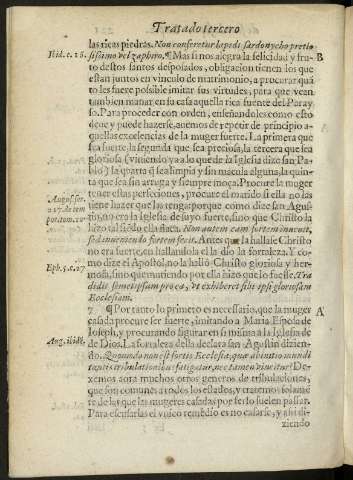 Tratado tercero
las ricas piedras. Non conferetur lapidi sardonycho pretio
Ibid. c. 28.
sissimo vel zaphiro. ¶ Mas si nos alegra la felicidad y fru
B
to destos santos desposados, obligacion tienen los que
estan juntos en vinculo de matrimonio, a procurar quã
to les fuere possible imitar sus virtudes, para que vean
tambien manar en su casa aquella rica fuente del Paray
so. Para proceder con orden, enseñandoles como esto
deue y puede hazerse, auemos de repetir de principio a
quellas excelencias de la muger fuerte. La primera que
sea fuerte, la segunda que sea preciosa, la tercera que sea
gloriosa (viniendo ya a lo que de la Iglesia dize san Pa
blo) la quarta q̃ sea limpia y sin macula alguna, la quin-
ta que sea sin arruga y siempre moça. Procure la muger
tener estas perfecciones, procure el marido si ella no las
tiene hazer que las tenga: porque como dize san Agus
tin, no era la Iglesia de suyo fuerte, sino que Christo la
hizo tal siẽdo ella flaca. Non autem eam fortem inuenit,
sed inueniendo fortem fecit. Antes que la hallasse Christo
no era fuerte, en hallandola el la dio la fortaleza. Y co
mo dize el Apostol, no la halló Christo gloriosa y her-
Eph. 5. c. 27
mosa, sino que muriendo por ella hizo que lo fuesse. Tra
didit semetipsum pro ea, vt exhiberet sibi ipsi gloriosam
Ecclesiam.
7 ¶ Por tanto lo primero es necessario, que la muger
A
casada procure ser fuerte, imitando a Maria Esposa de
Ioseph, y procurando figurar en si misma a la Iglesia de
Aug. ibidẽ.
de Dios. La fortaleza desta declara san Agustin dizien-
do. Quomodo non est fortis Ecclesia, quæ ab initio mundi
tantis tribulationibus fatigatur, nec tamen vincitur? De
xemos aora muchos otros generos de tribulaciones,
que son comunes a todos los estados, y tratemos solamẽ
te de las que las mugeres casadas por serlo suelen passar.
Para escusarlas el vnico remedio es no casarse, y assi di-
ziendo